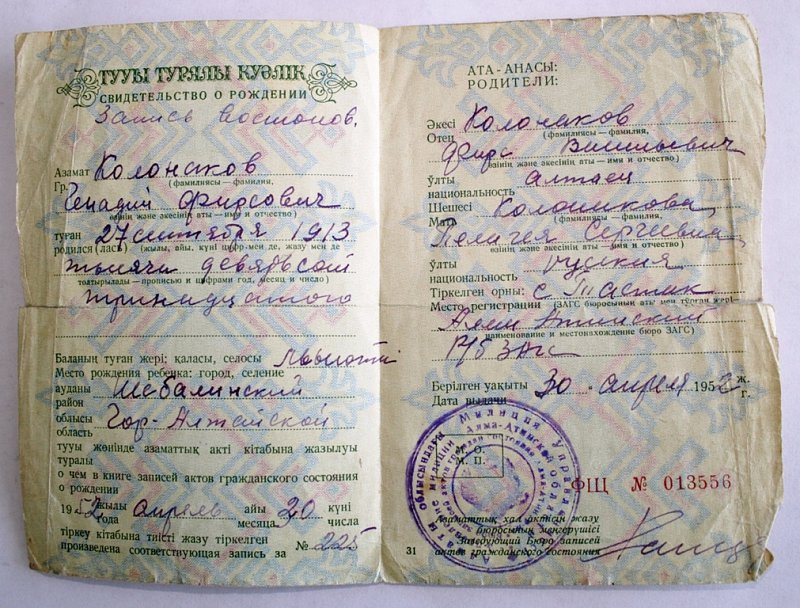 ТУУЫ ТУРАЛЫ КУӘЛІК
СВИДЕТЕЛЬСТВО О РОЖДЕНИИ
Запись восстанов.
Азамат Колонаков
Гр. (фамилиясы — фамилия,
Генадий Фирсович
өзінің және әкесінің аты — имя и отчество)
туған 27 сентября 1913
родился (лась) (жылы, айы, күні цифр мен де, жазу мен де
тысяча девятьсот
толтырылады — прописью и цифрами год, месяц и число)
тринадцатого
Баланың туған жері; қаласы, селосы
Место рождения ребенка: город, селение
ауданы Шебалинский
район
облысы Гор-Алтайской
область
тууы жөнінде азаматтық акті кітабына жазылуы
туралы
о чем в книге записей актов гражданского состояния
о рождении
1952 апрель айы 20 күні
года месяца числа
тіркеу кітабына тиісті жазу тіркелген
произведена соответствующая запись за № 225
АТА-АНАСЫ:
РОДИТЕЛИ:
Әкесі Колонаков
Отец (фамилиясы — фамилия,
Фирс Васильевич
өзінің және әкесінің аты — имя и отчество)
ұлты алтаец
национальность
Шешесі Колонакова
Мать (фамилиясы — фамилия,
Пелагея Сергеевна
өзінің және әкесінің аты — имя и отчество)
ұлты русская
национальность
Тіркелген орны: с Тастак
Место регистрации (ЗАГС бюросының аты мен тұрған жері
Алма Атинский
наименование и местонахождение бюро ЗАГС)
Р/б ЗАГС
Берілген уақыты 30 апреля 1952 ж.
Дата выдачи г.
М. О.
М. П.
ФЩ № 013556
Азаматтық хал актісін жазу
бюросының меңгерушісі
Заведующий Бюро записей
31 актов гражданского состояния